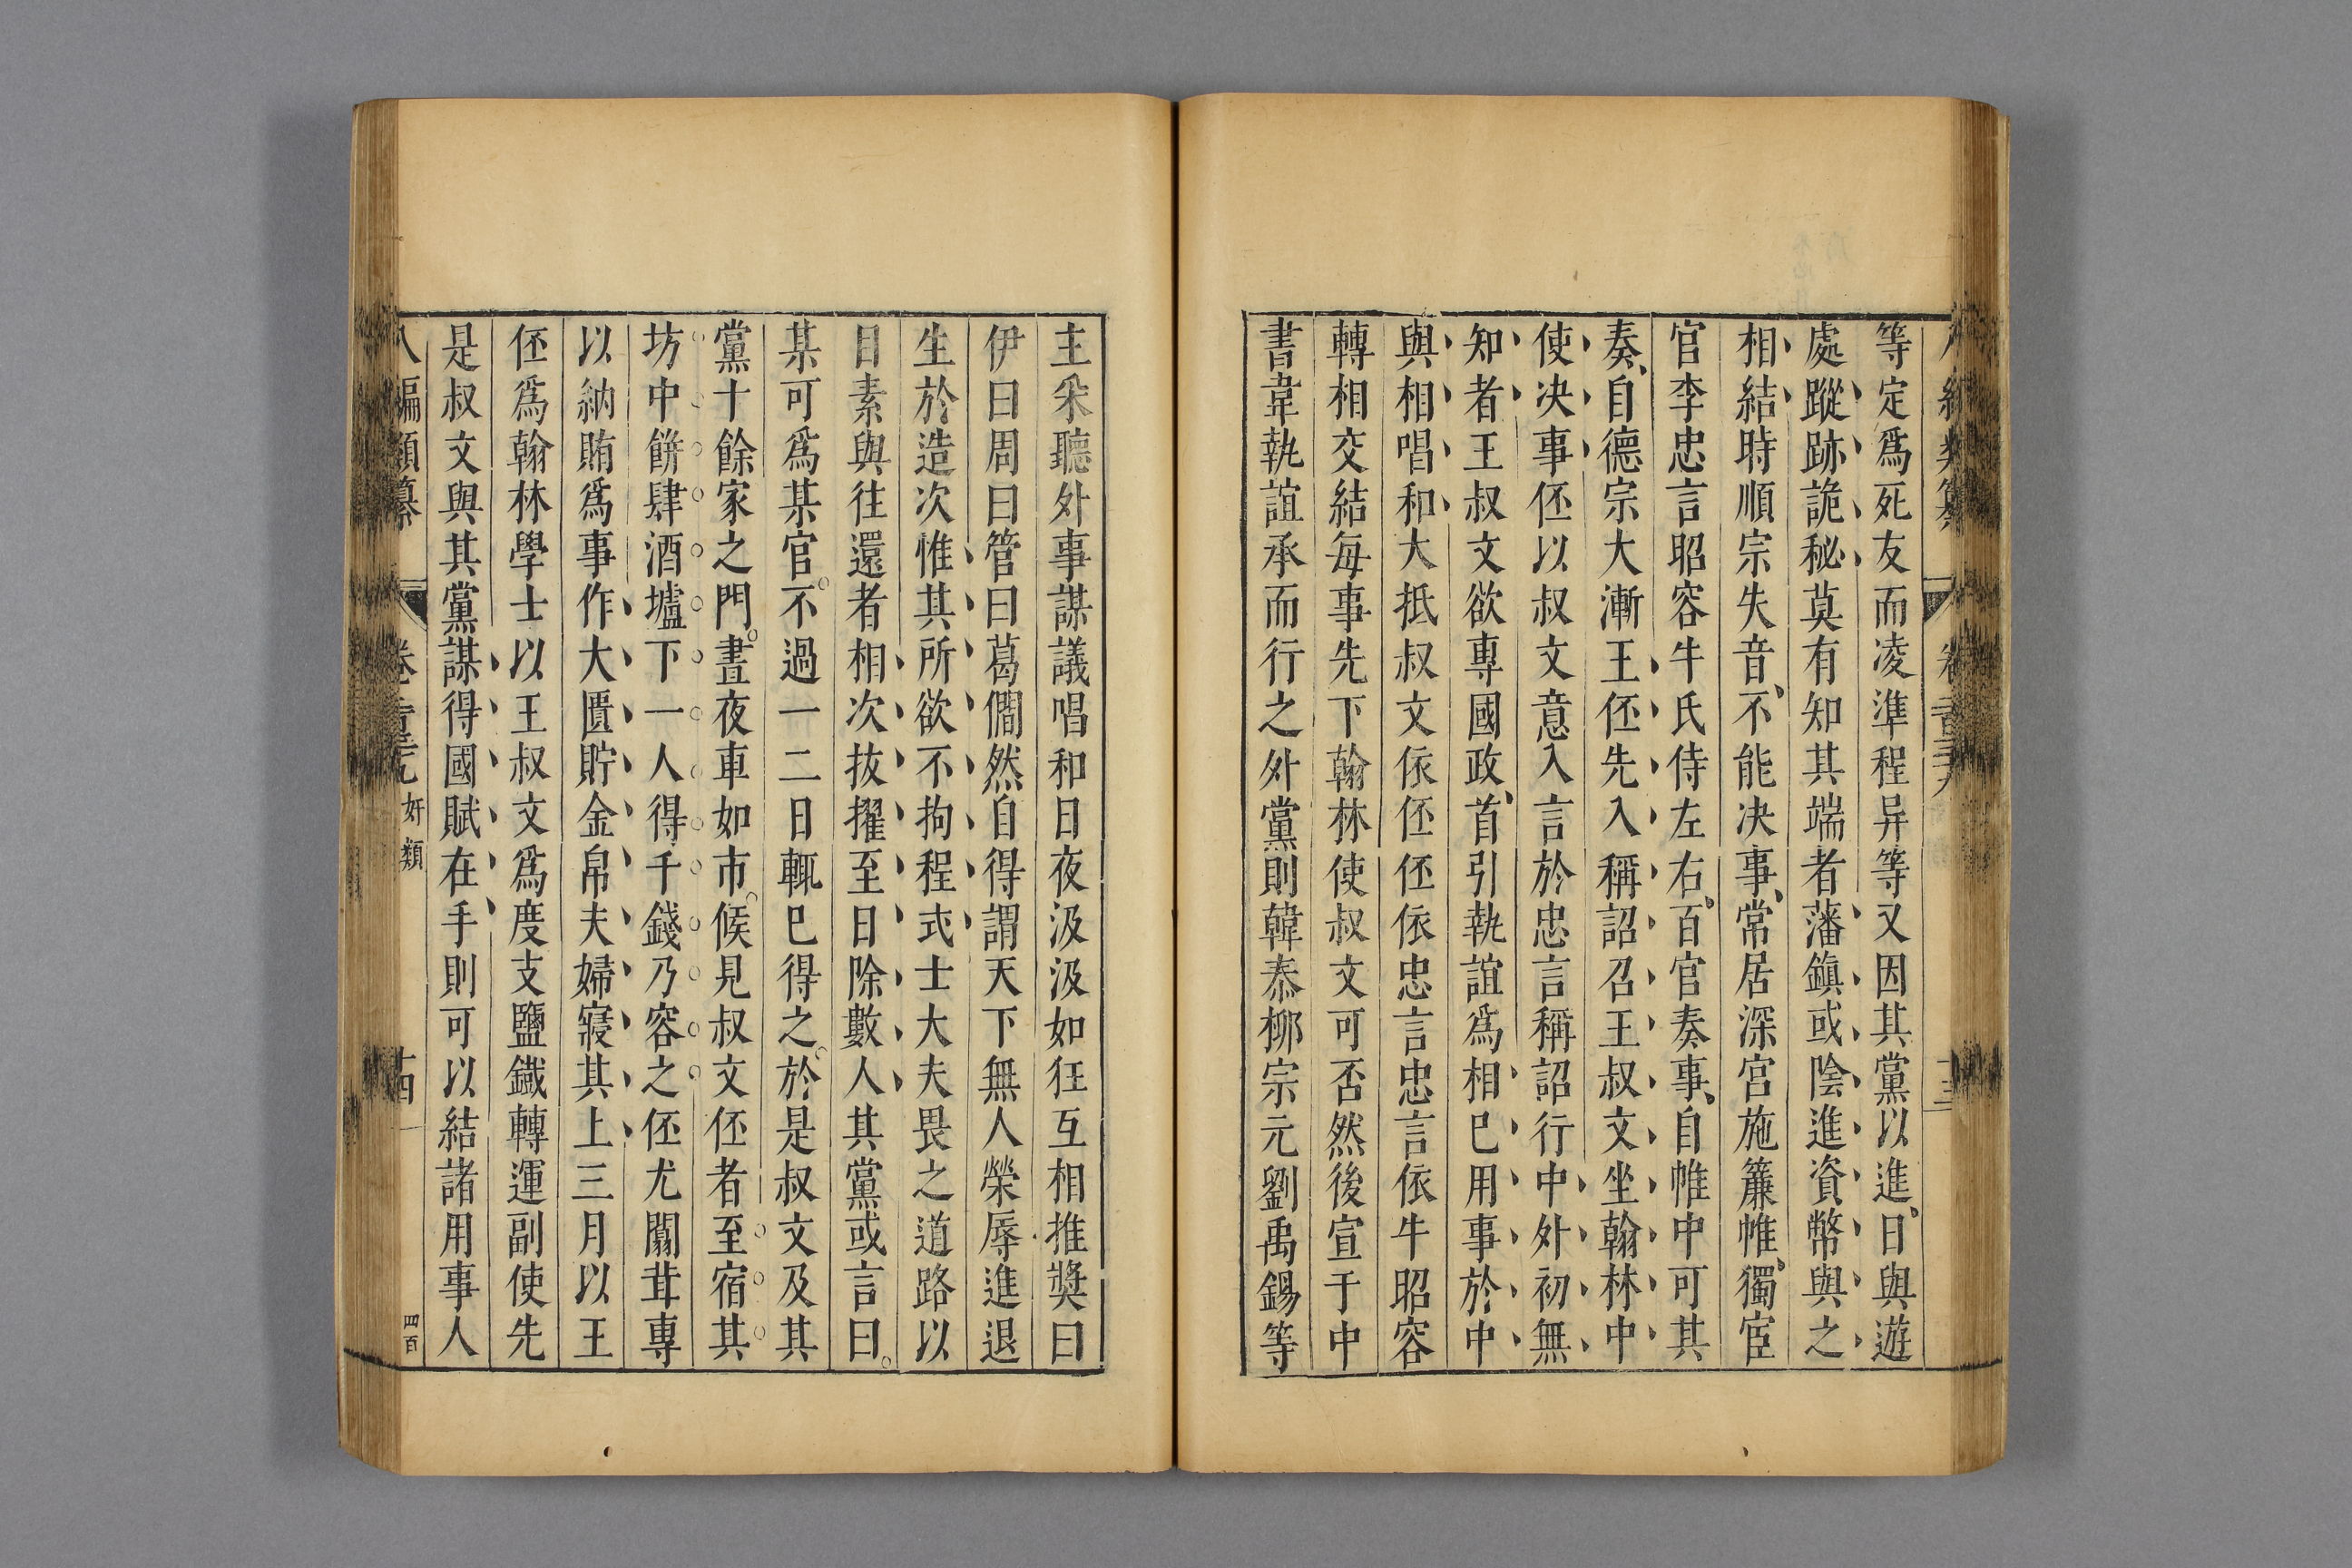 等定爲死友而凌準程异等又因其黨以進日與遊
處蹤跡詭秘莫有知其端者藩鎮或陰進資幣與之
相結時順宗失音不能决事常居深宮施簾帷獨宦
官李忠言昭容牛氏侍左右百官奏事自帷中可其
奏自德宗大漸王伾先入稱詔召王叔文坐翰林中
使决事伾以叔文意入言於忠言稱詔行中外初無
知者王叔文欲專國政首引執誼爲相巳用事於中
與相唱和大抵叔文依伾伾依忠言忠言依牛昭容
轉相交結每事先下翰林使叔文可否然後宣于中
書韋執誼承而行之外黨則韓泰栁宗元劉禹錫等
主采聽外事謀議唱和日夜汲汲如狂互相推奬曰
伊曰周曰管曰葛僩然自得謂天下無人榮辱進退
生於造次惟其所欲不拘程式士大夫畏之道路以
目素與往還者相次拔擢至日除數人其黨或言曰
某可爲某官不過一二日輒巳得之於是叔文及其
黨十餘家之門晝夜車如市候見叔文伾者至宿其
坊中餅肆酒壚下一人得千錢乃容之伾尤闒茸專
以納賄爲事作大匱貯金帛夫婦寢其上三月以王
伾爲翰林學士以王叔文爲度支鹽鐵轉運副使先
是叔文與其黨謀得國賦在手則可以結諸用事人
八編類纂 卷 奸類 十四 四百